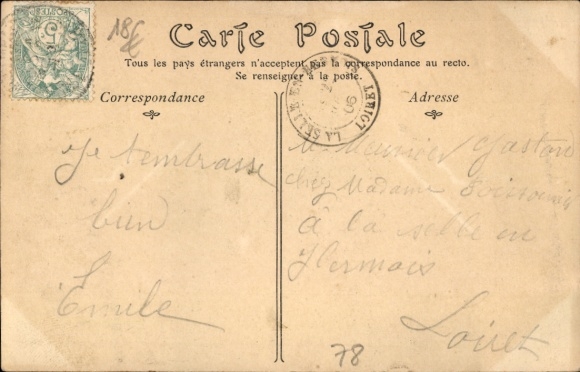 18€
Carte Postale
Tous les pays étrangers n'acceptent pas la correspondance au recto.
Se renseigner à la poste.
Correspondance
Adresse
LA SELLE EN
LOIRET
06
Je t'embrasse
bien
Emile
Mr Meunier Gaston
chez Madame
à la selle en
Hermois
Loiret
78